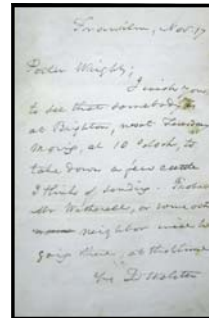 Nov. 17
Porter Wright;
I wish you
to see that somebody is
at Brighton, next Tuesday
Morng, at 10 o'clock, to
take down a few cattle
I think of sending.
Mr Witherell, or some other
neighbor will be
going there, at that time
Yrs D. Webster